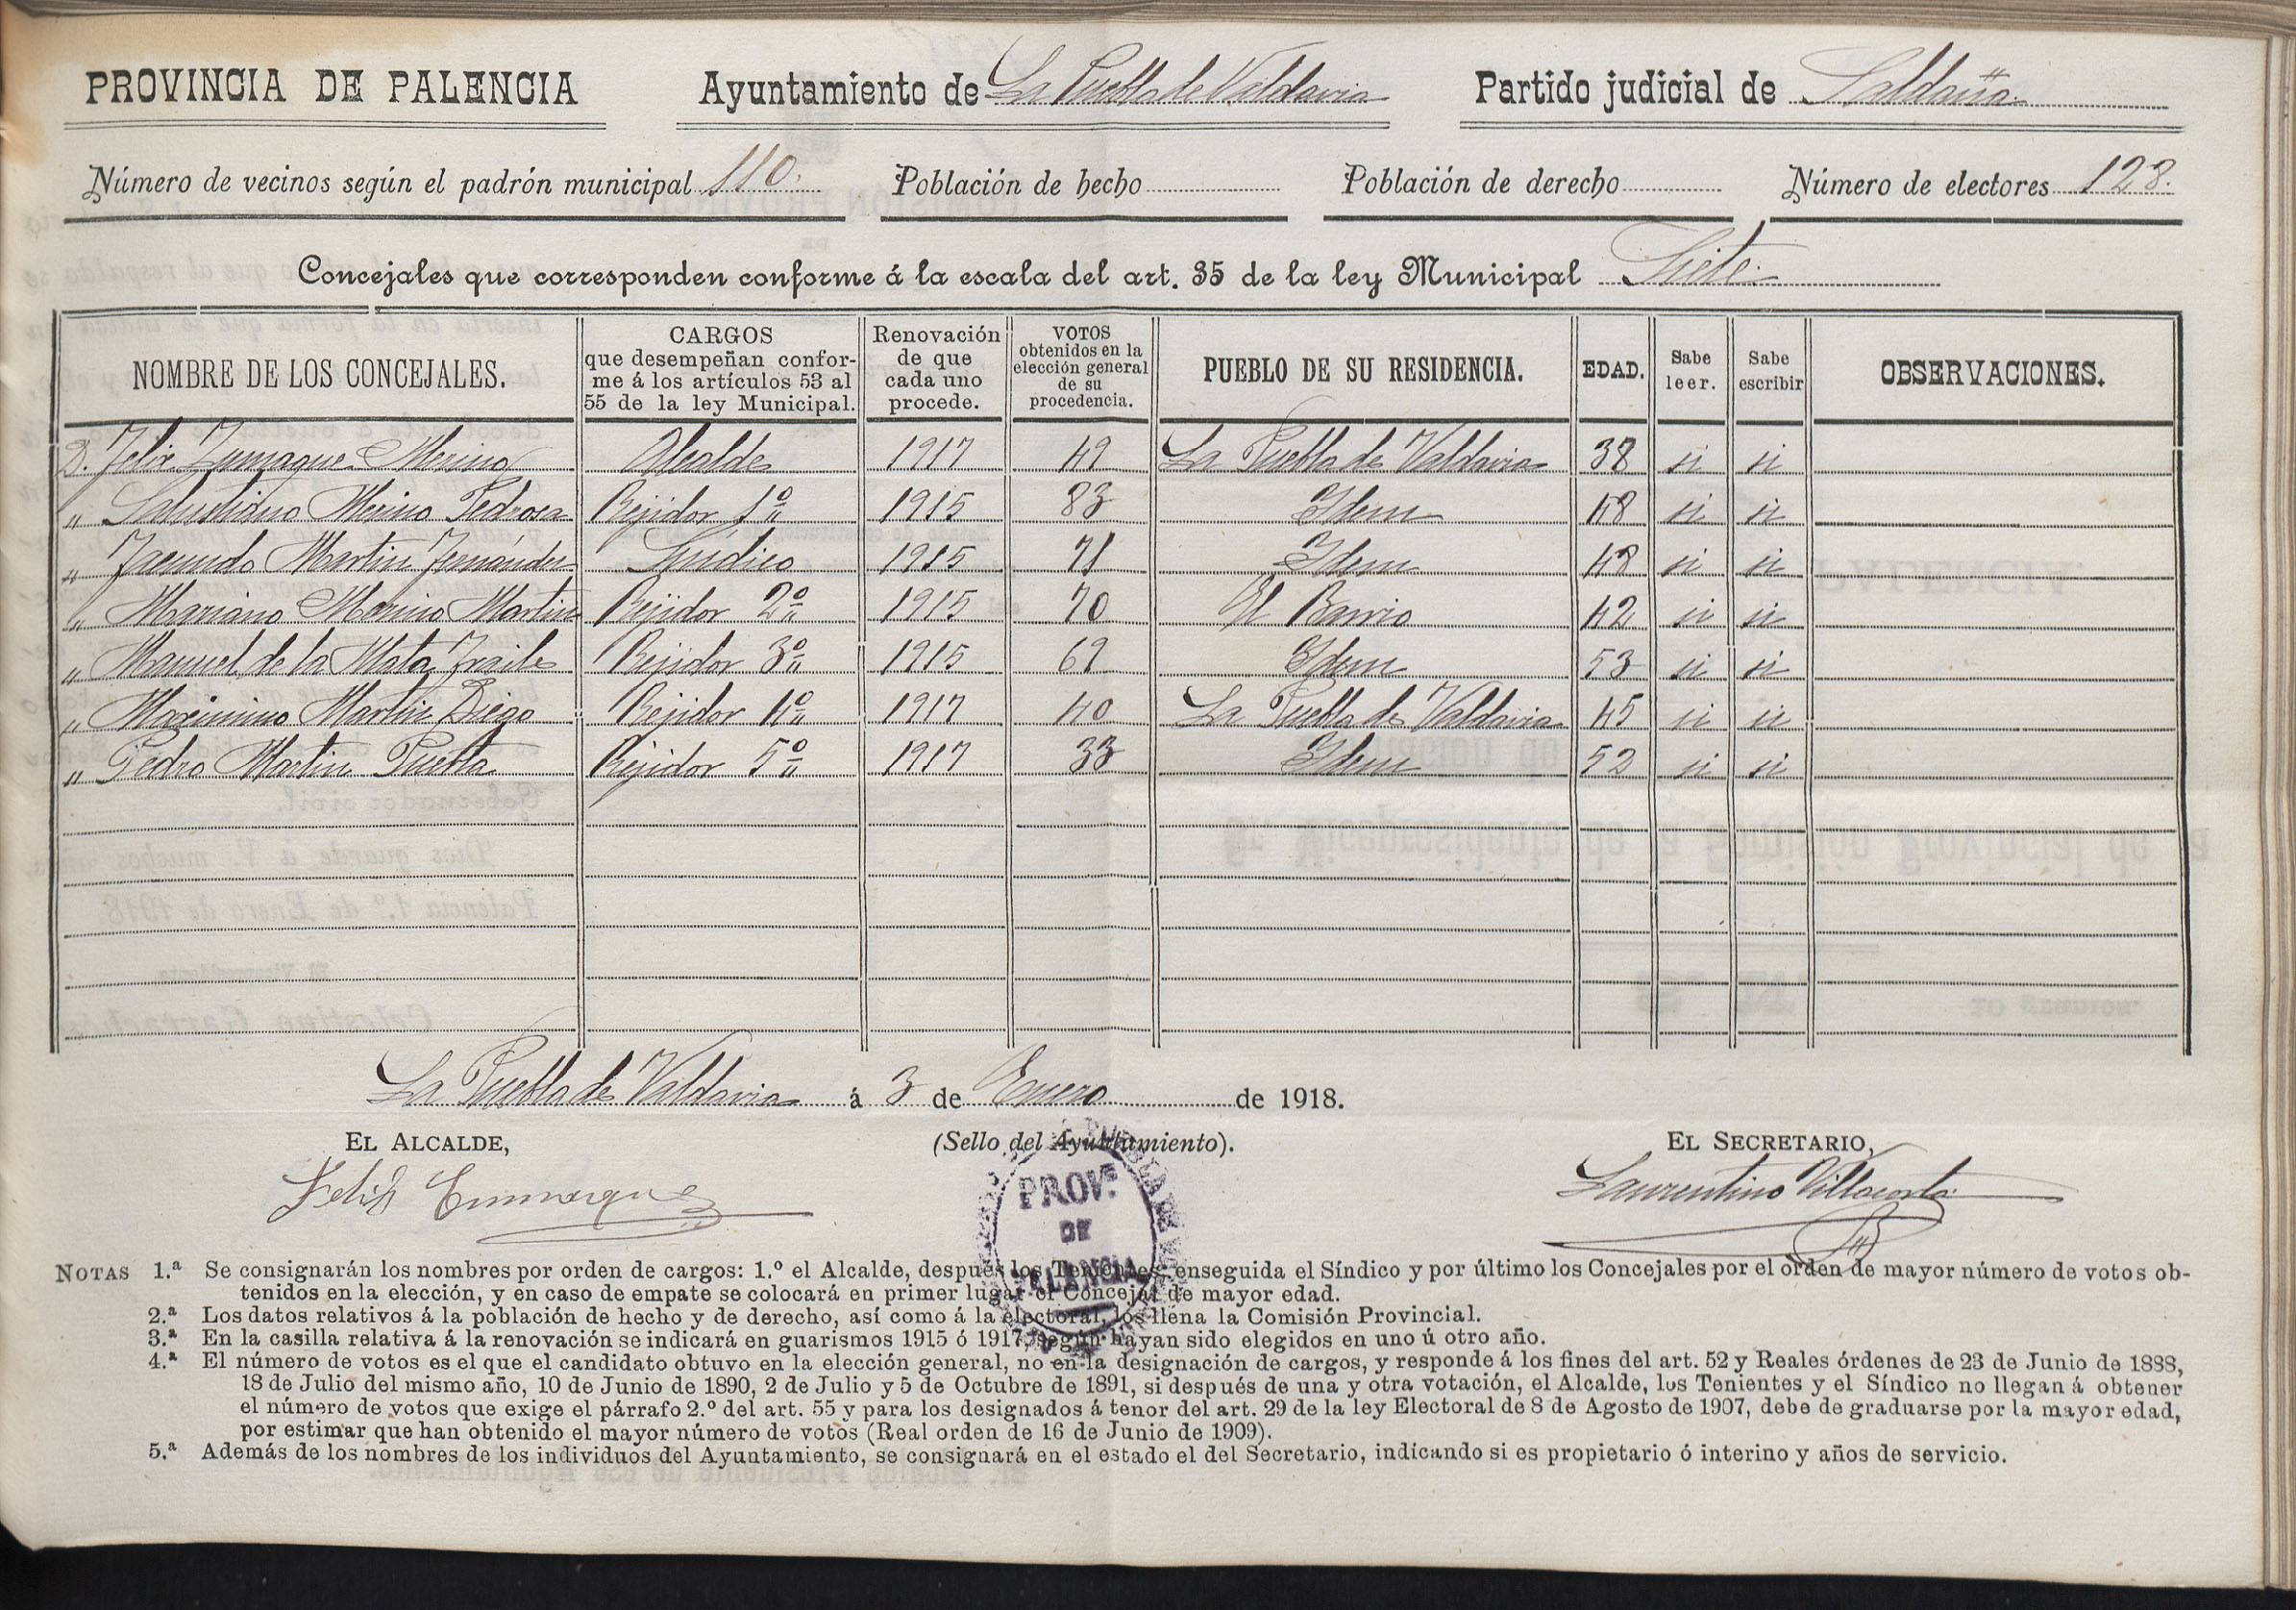 PROVINCIA DE PALENCIA Ayuntamiento de La Puebla de Valdavia Partido judicial de Saldaña
Número de vecinos según el padrón municipal 110. Población de hecho Población de derecho Número de electores 128.
Concejales que corresponden conforme á la escala del art. 35 de la ley Municipal Siete
NOMBRE DE LOS CONCEJALES. CARGOS que desempeñan confor- me á los artículos 53 al 55 de la ley Municipal. Renovación de que cada uno procede. VOTOS obtenidos en la elección general de su procedencia. PUEBLO DE SU RESIDENCIA. EDAD. Sabe leer. Sabe escribir OBSERVACIONES.
D. Felix Zumaque Merino Alcalde 1917 49 La Puebla de Valdavia 38 si si
„ Salustiano Merino Pedrosa Rejidor 1º 1915 83 Idem 48 si si
„ Facundo Martin Fernández Síndico 1915 71 Idem 48 si si
„ Mariano Merino Martin Rejidor 2º 1915 70 El Barrio 42 si si
„ Manuel de la Mata Fraile Rejidor 3º 1915 69 Idem 53 si si
„ Maximino Martin Diego Rejidor 4º 1917 40 La Puebla de Valdavia 45 si si
„ Pedro Martin Puebla Rejidor 5º 1917 33 Idem 52 si si
La Puebla de Valdavia á 3 de Enero de 1918.
EL ALCALDE, (Sello del Ayuntamiento). EL SECRETARIO,
Felix Zumaque Laurentino Villacorta
PROVª
DE
PALENCIA
NOTAS 1.ª Se consignarán los nombres por orden de cargos: 1.º el Alcalde, después los Tenientes, enseguida el Síndico y por último los Concejales por el orden de mayor número de votos ob-
tenidos en la elección, y en caso de empate se colocará en primer lugar el Concejal de mayor edad.
2.ª Los datos relativos á la población de hecho y de derecho, así como á la electoral, los llena la Comisión Provincial.
3.ª En la casilla relativa á la renovación se indicará en guarismos 1915 ó 1917, según hayan sido elegidos en uno ú otro año.
4.ª El número de votos es el que el candidato obtuvo en la elección general, no en la designación de cargos, y responde á los fines del art. 52 y Reales órdenes de 23 de Junio de 1888,
18 de Julio del mismo año, 10 de Junio de 1890, 2 de Julio y 5 de Octubre de 1891, si después de una y otra votación, el Alcalde, los Tenientes y el Síndico no llegan á obtener
el número de votos que exige el párrafo 2.º del art. 55 y para los designados á tenor del art. 29 de la ley Electoral de 8 de Agosto de 1907, debe de graduarse por la mayor edad,
por estimar que han obtenido el mayor número de votos (Real orden de 16 de Junio de 1909).
5.ª Además de los nombres de los individuos del Ayuntamiento, se consignará en el estado el del Secretario, indicando si es propietario ó interino y años de servicio.